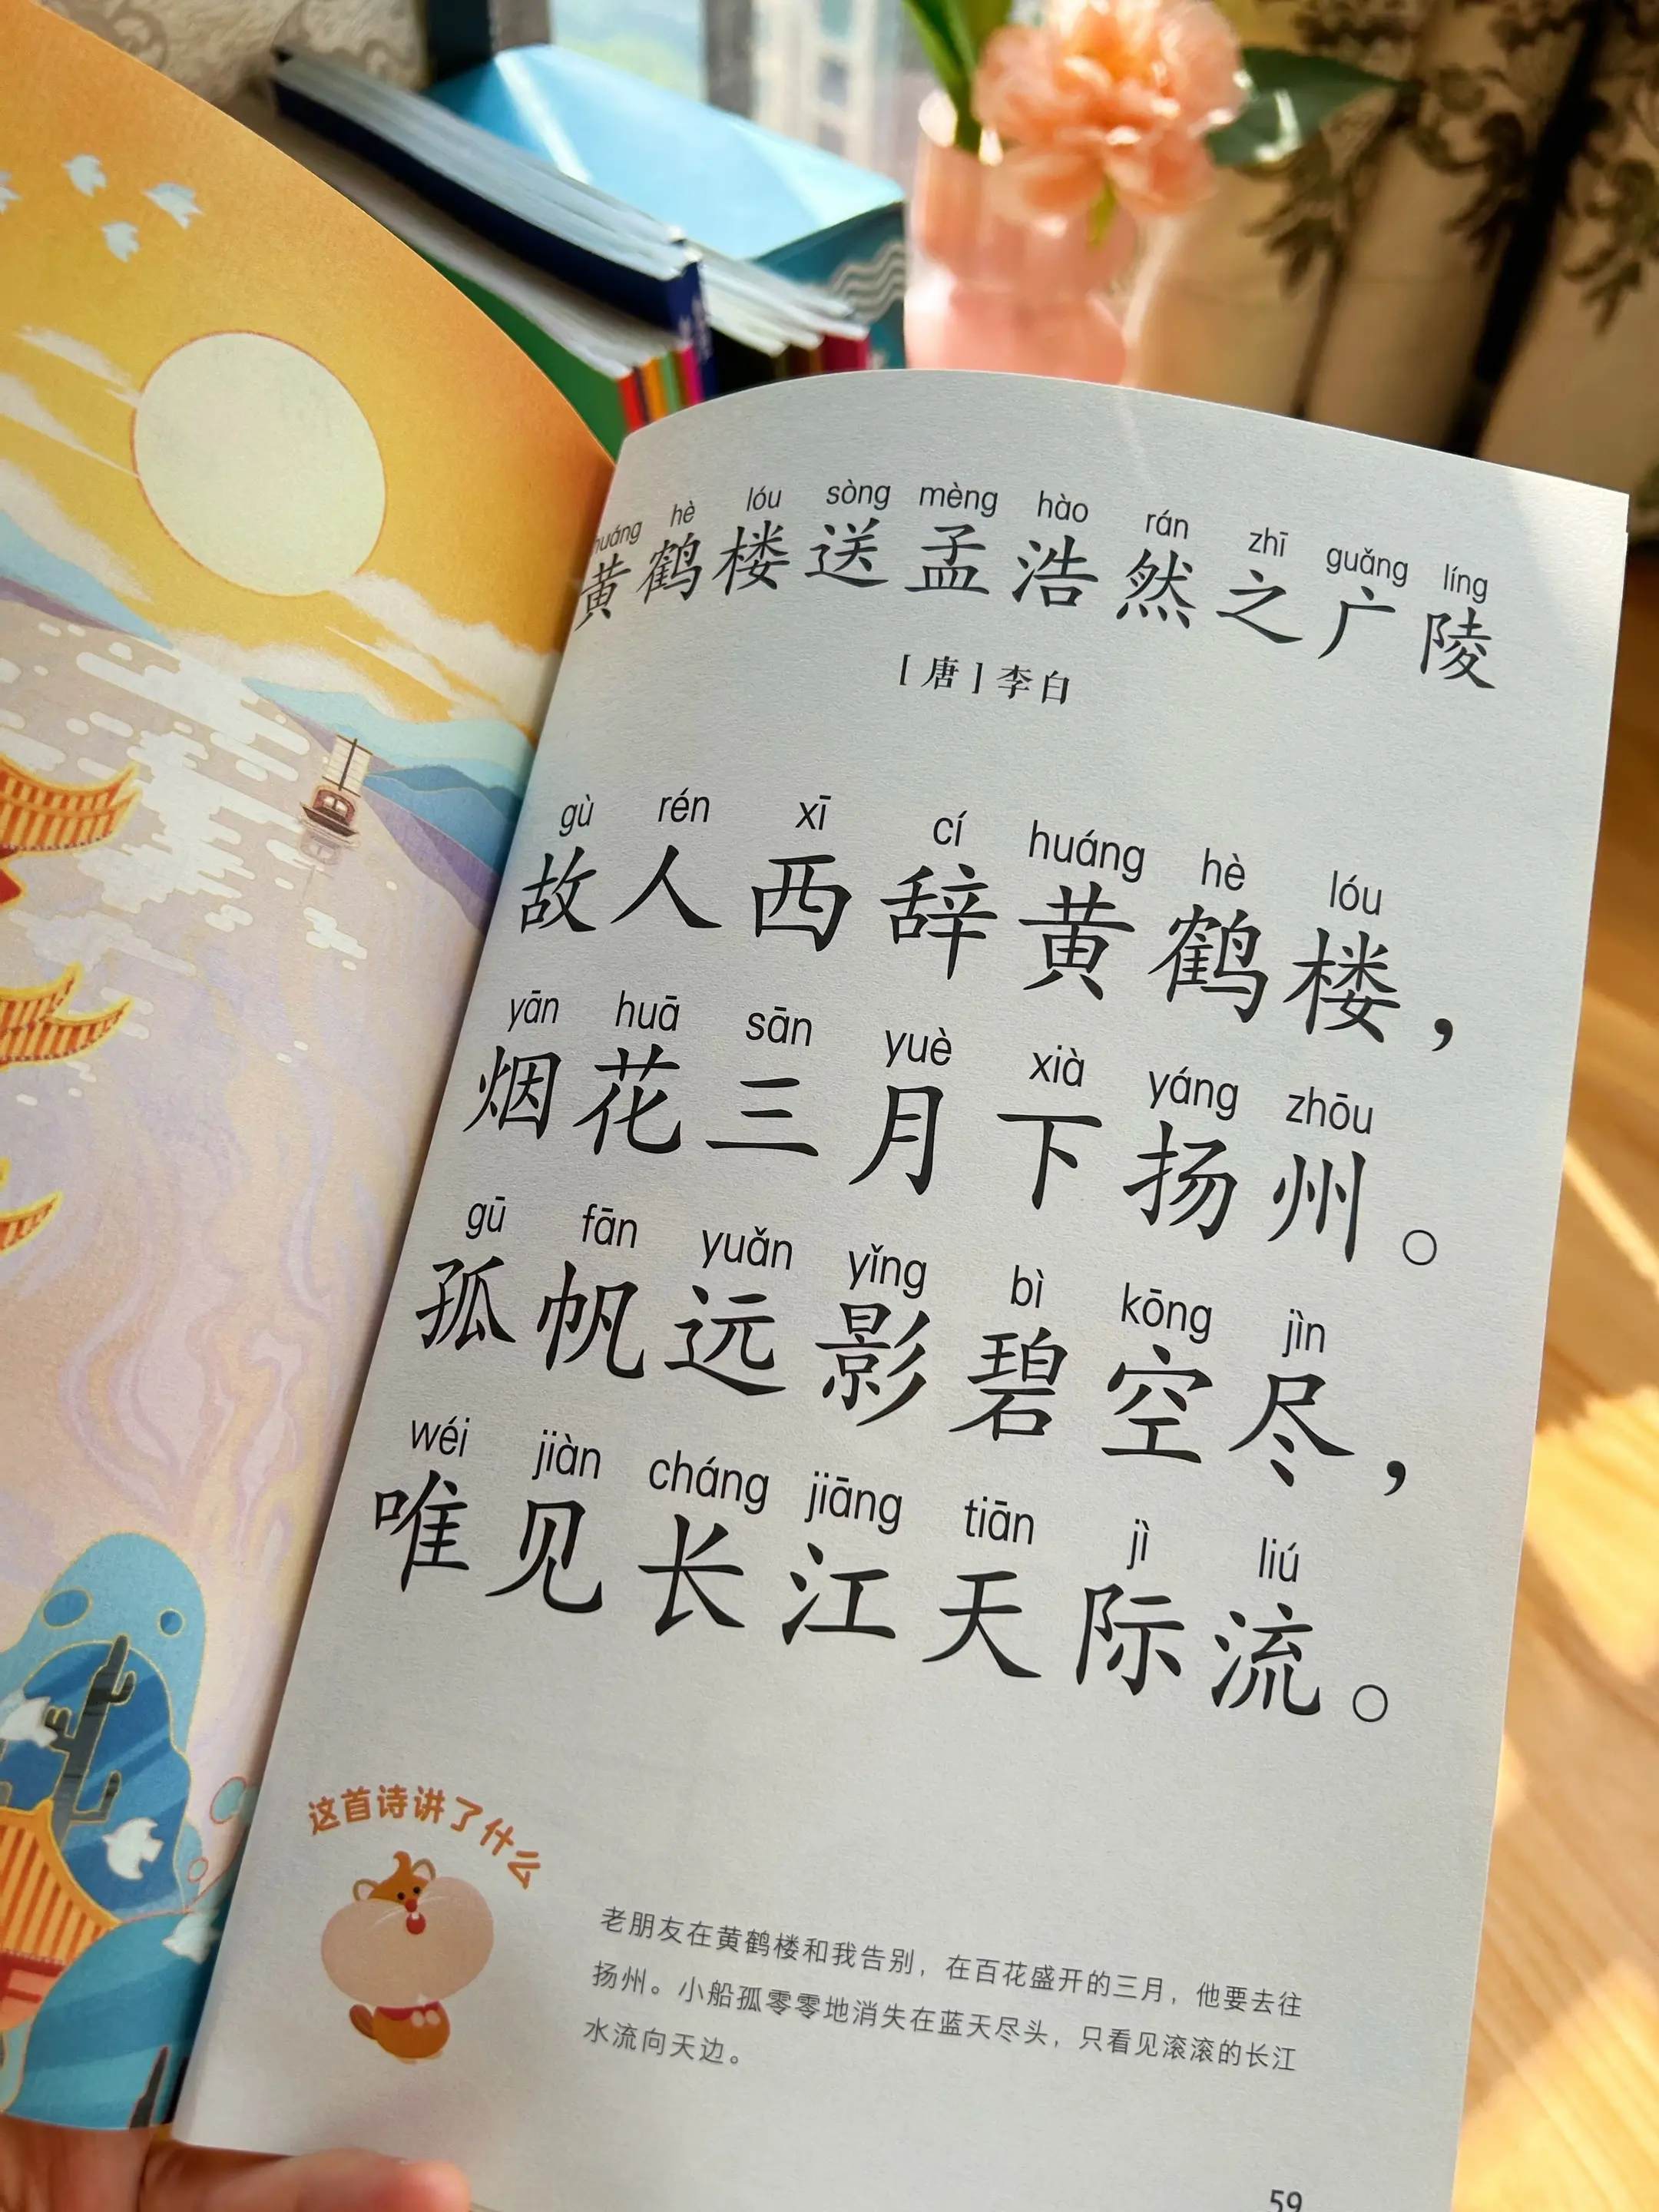 huáng hè lóu sòng mèng hào rán zhī guǎng líng
黄鹤楼送孟浩然之广陵
［唐］李白
gù rén xī cí huáng hè lóu
故人西辞黄鹤楼，
yān huā sān yuè xià yáng zhōu
烟花三月下扬州。
gū fān yuǎn yǐng bì kōng jìn
孤帆远影碧空尽，
wéi jiàn cháng jiāng tiān jì liú
唯见长江天际流。
这首诗讲了什么
老朋友在黄鹤楼和我告别，在百花盛开的三月，他要去往
扬州。小船孤零零地消失在蓝天尽头，只看见滚滚的长江
水流向天边。
59